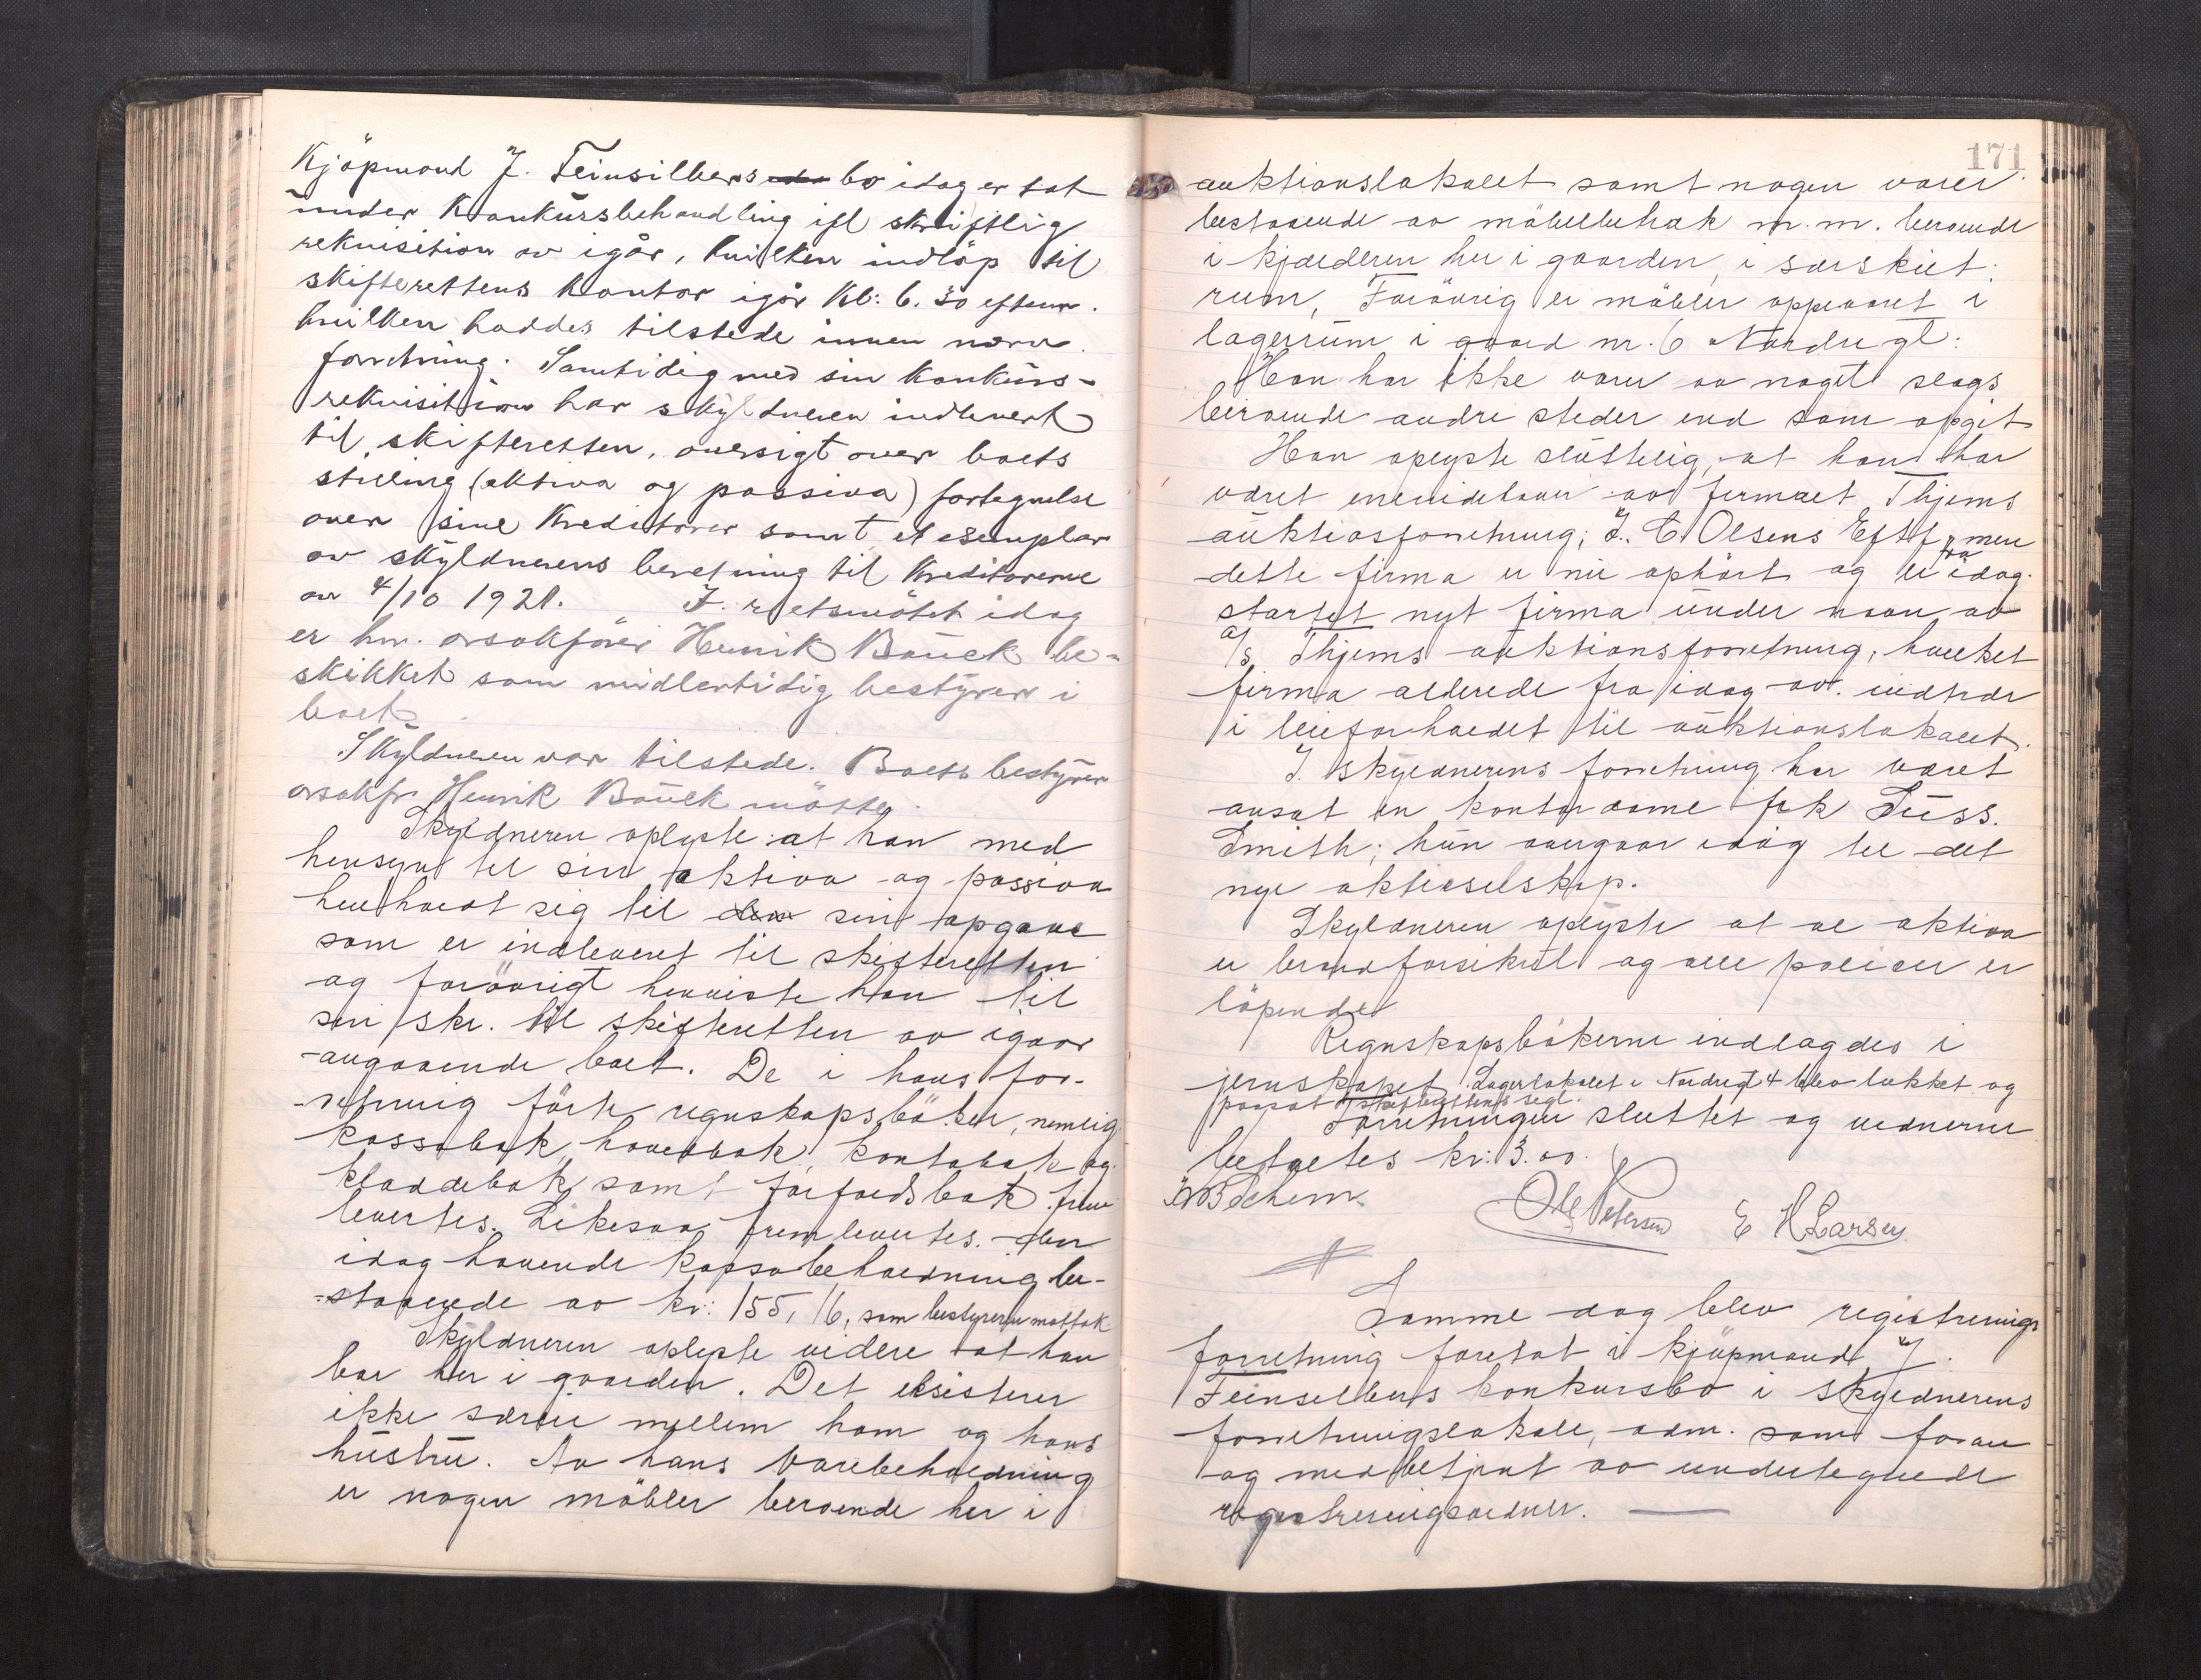 Kjöpmand J. Feinsilbers bo idag er tat
under Konkursbehandling ifl skriftlig
rekvisition av igår, hvilken indløp til
skifterettens kontor igår Kl: 6. 30 efterm.
hvilken haddes tilstede innen nærv.
forretning. Samtidig med sin Konkurs-
rekvisition har skyldneren indlevert
til skifteretten, oversigt over boets
stilling (aktiva og passiva) fortegnelse
over sine Kreditorer samt et exemplar
av skyldnerens beretning til Kreditorerne
av 4/10 1921. I. retsmötet idag
er hr. orsakfører Henrik Bauck be-
skikket som midlertidig bestyrer i
boet.
Skyldneren var tilstede. Boets bestyrer
orsakfr. Henrik Bauck mötte.
Skyldneren oplyste at han med
hensyn til sin aktiva og passiva
henholdt sig til den sin opgave
som er indleveret til skifteretten
og forövrigt henviste han til
sin skr. til skifteretten av igaar
angaaende boet. De i hans for-
retning förte regnskapsböker, nemlig
kassabok, hovedbok, kontobok og
kladdebok samt forfaldsbok frem
levertes. Likesaa fremlevertes den
idag havende kassabeholdning be-
staaende av kr: 155,16, som bestyreren mottok
Skyldneren oplyste videre at han
bor her i gaarden. Det eksisterer
ikke særeie mellem ham og hans
hustru. Av hans varebeholdning
er nogen möbler beroende her i
171
auktionslokalet samt nogen varer
bestaaende av möbelbetræk m. m. beroende
i kjælderen her i gaarden, i særskilt
rum, Forövrig er möbler oppevaret i
lagerrum i gaard nr. 6 Nordregt.
Han har ikke varer av noget slags
beroende andre steder end som opgit
Han oplyste sluttelig, at han har
været eneindehaver av firmaet Thjems
auktiosforretning, J. C. Olsens Eftf, men
dette firma er nu ophört og er fra idag
startet nyt firma under navn av
A/s Thjems auktionsforretning, hvilket
firma allerede fra idag av indtrær
i leieforholdet til auktionslokalet.
I skyldnerens forretning har været
ansat en kontordame frk Suss.
Smith; hun overgaar idag til det
nye aktieselskap.
Skyldneren oplyste at al aktiva
er brandforsikret og alle policer er
löpende
Regnskapsbökerne indlagdes i
jernskapet. Lagerlokalet i Nordregt 4 blev lukket og
paasat skifterettens segl.
Forretningen sluttet og vidnerne
betaltes kr: 3.00.
Ole Petersen E H Larsen
Samme dag blev registrerings
forretning foretat i kjöpmand J.
Feinselbers konkursbo i skyldnerens
forretningslokale, adm. som foran
og med betjent av undertegnede
registreringsvidner.